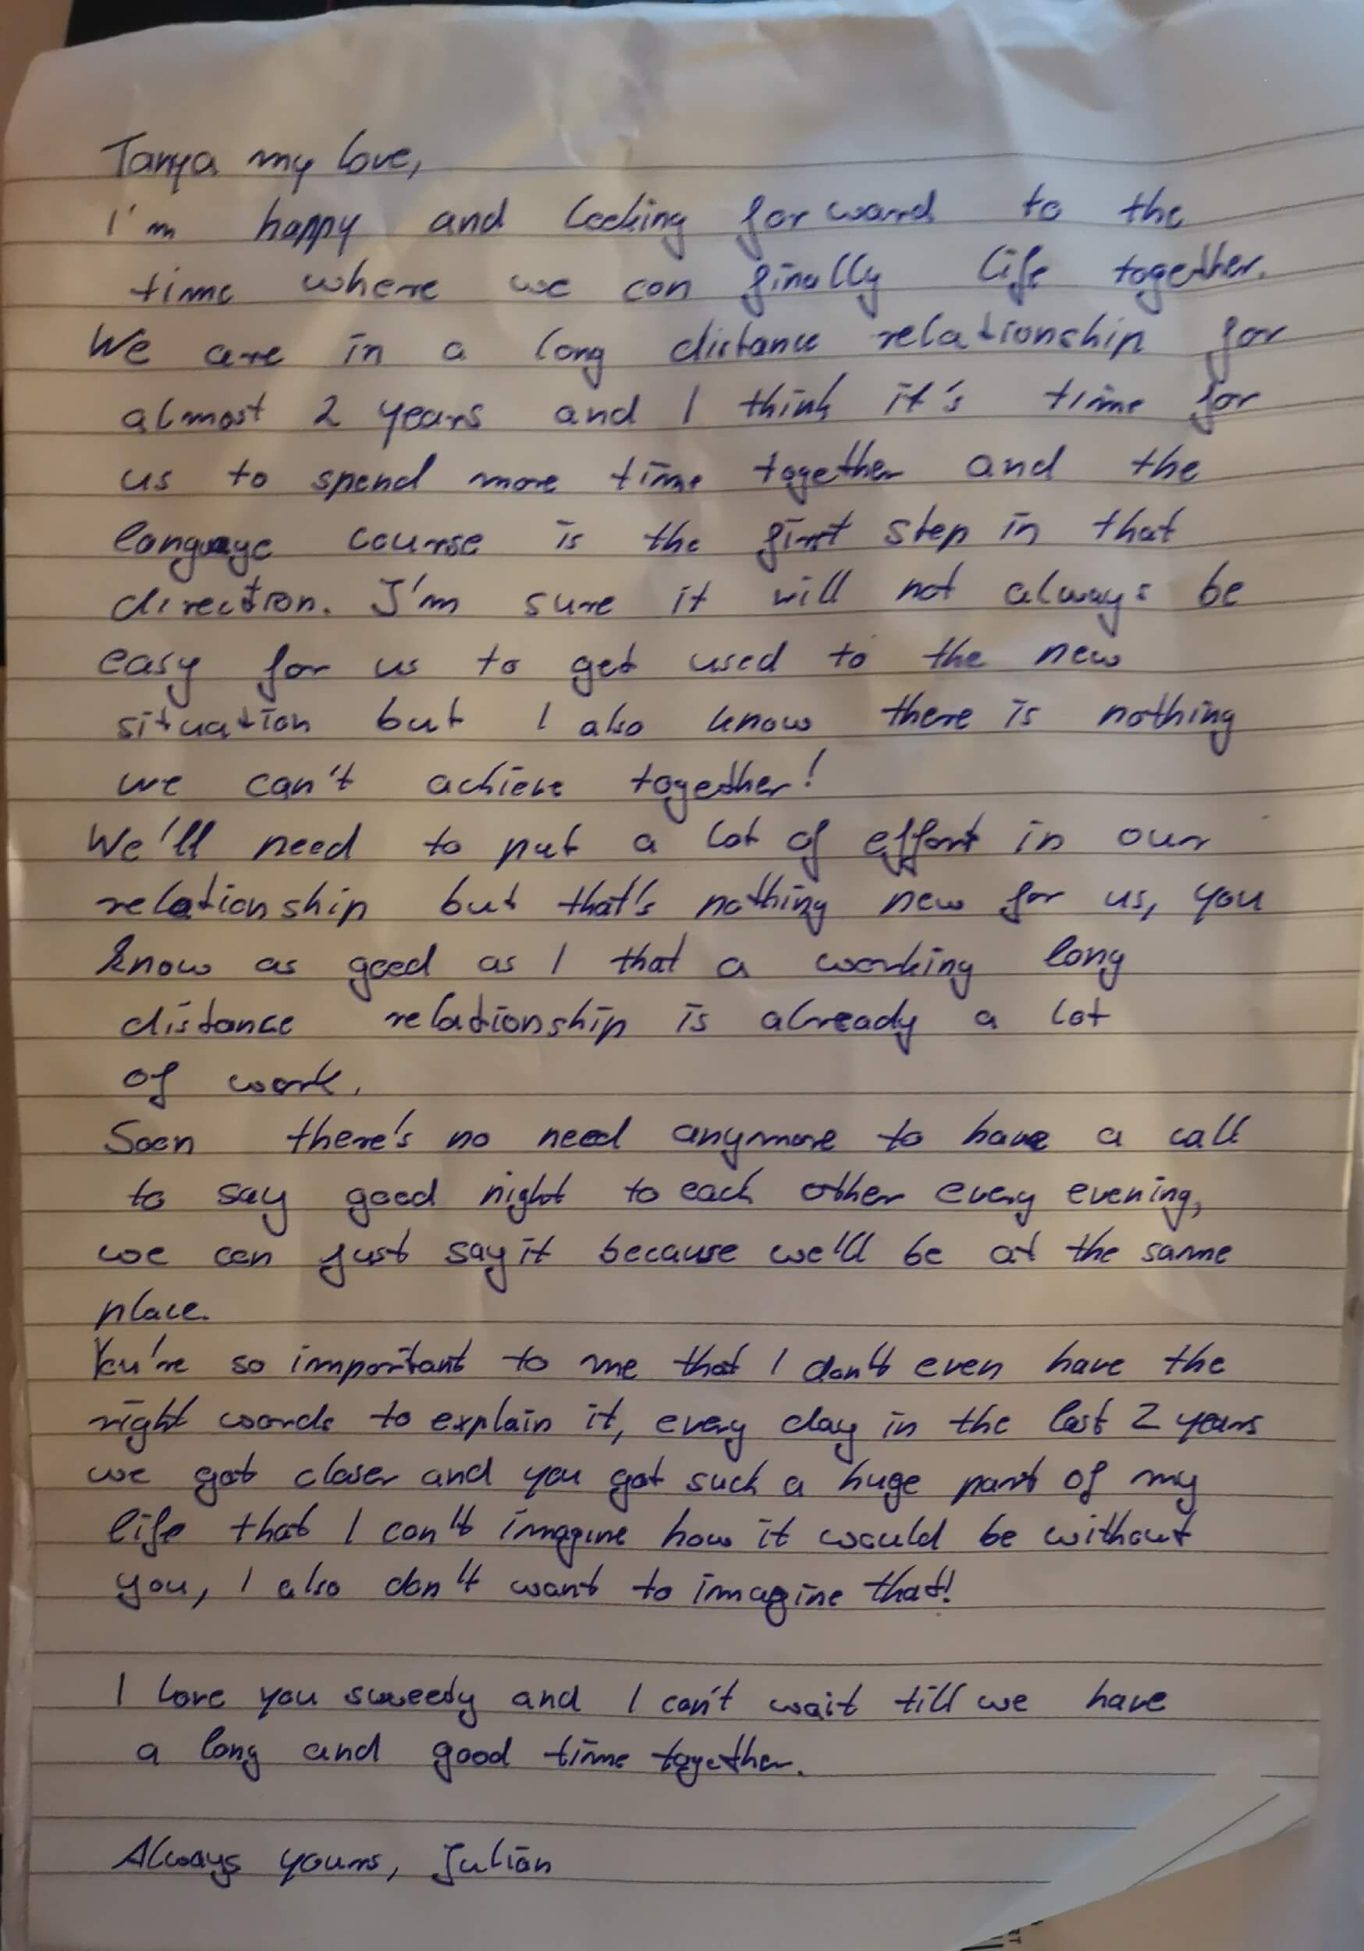 Tanya my love,
I'm happy and looking forward to the
time where we can finally life together.
We are in a long distance relationship for
almost 2 years and I think it's time for
us to spend more time together and the
language course is the first step in that
direction. I'm sure it will not always be
easy for us to get used to the new
situation but I also know there is nothing
we can't achieve together!
We'll need to put a lot of effort in our
relationship but that's nothing new for us, you
know as good as I that a working long
distance relationship is already a lot
of work.
Soon there's no need anymore to have a call
to say good night to each other every evening,
we can just say it because we'll be at the same
place.
You're so important to me that I don't even have the
right words to explain it, every day in the last 2 years
we got closer and you got such a huge part of my
life that I can't imagine how it would be without
you, I also don't want to imagine that!
I love you sweety and I can't wait till we have
a long and good time together.
Always yours, Julian